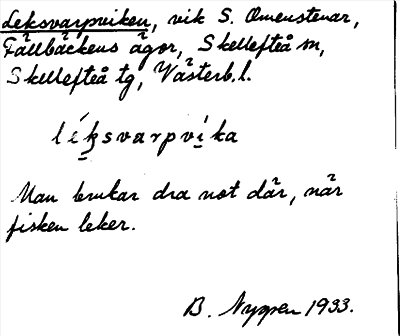 Leksvarpviken, vik S. Omenstenar,
Fällbäckens ägor, Skellefteå m,
Skellefteå tg, Västerb. l.
léksvarpvika
Man brukar dra not där, när
fisken leker.
B. Nygren 1933.